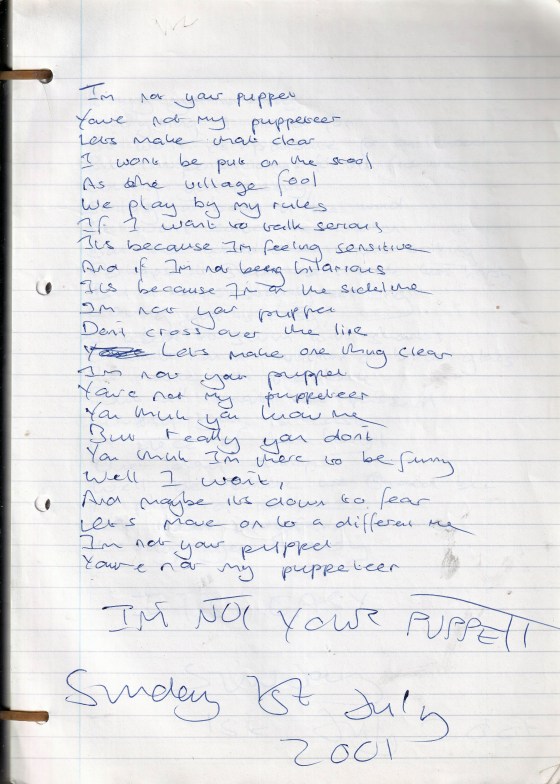 I'm not your puppet
You're not my puppeteer
Lets make that clear
I wont be put on the stool
As the village fool
We play by my rules
If I want to talk serious
It's because I'm feeling sensitive
And if I'm not being hilarious
It's because I'm on the sideline
I'm not your puppet
Don't cross over the line
Lets make one thing clear
I'm not your puppet
You're not my puppeteer
You think you know me
But really you dont
You think I'm there to be funny
Well I wont,
And maybe its down to fear
Let's move on to a different me
I'm not your puppet
You're not my puppeteer
I'M NOT YOUR PUPPETT
Sunday 1st July
2001